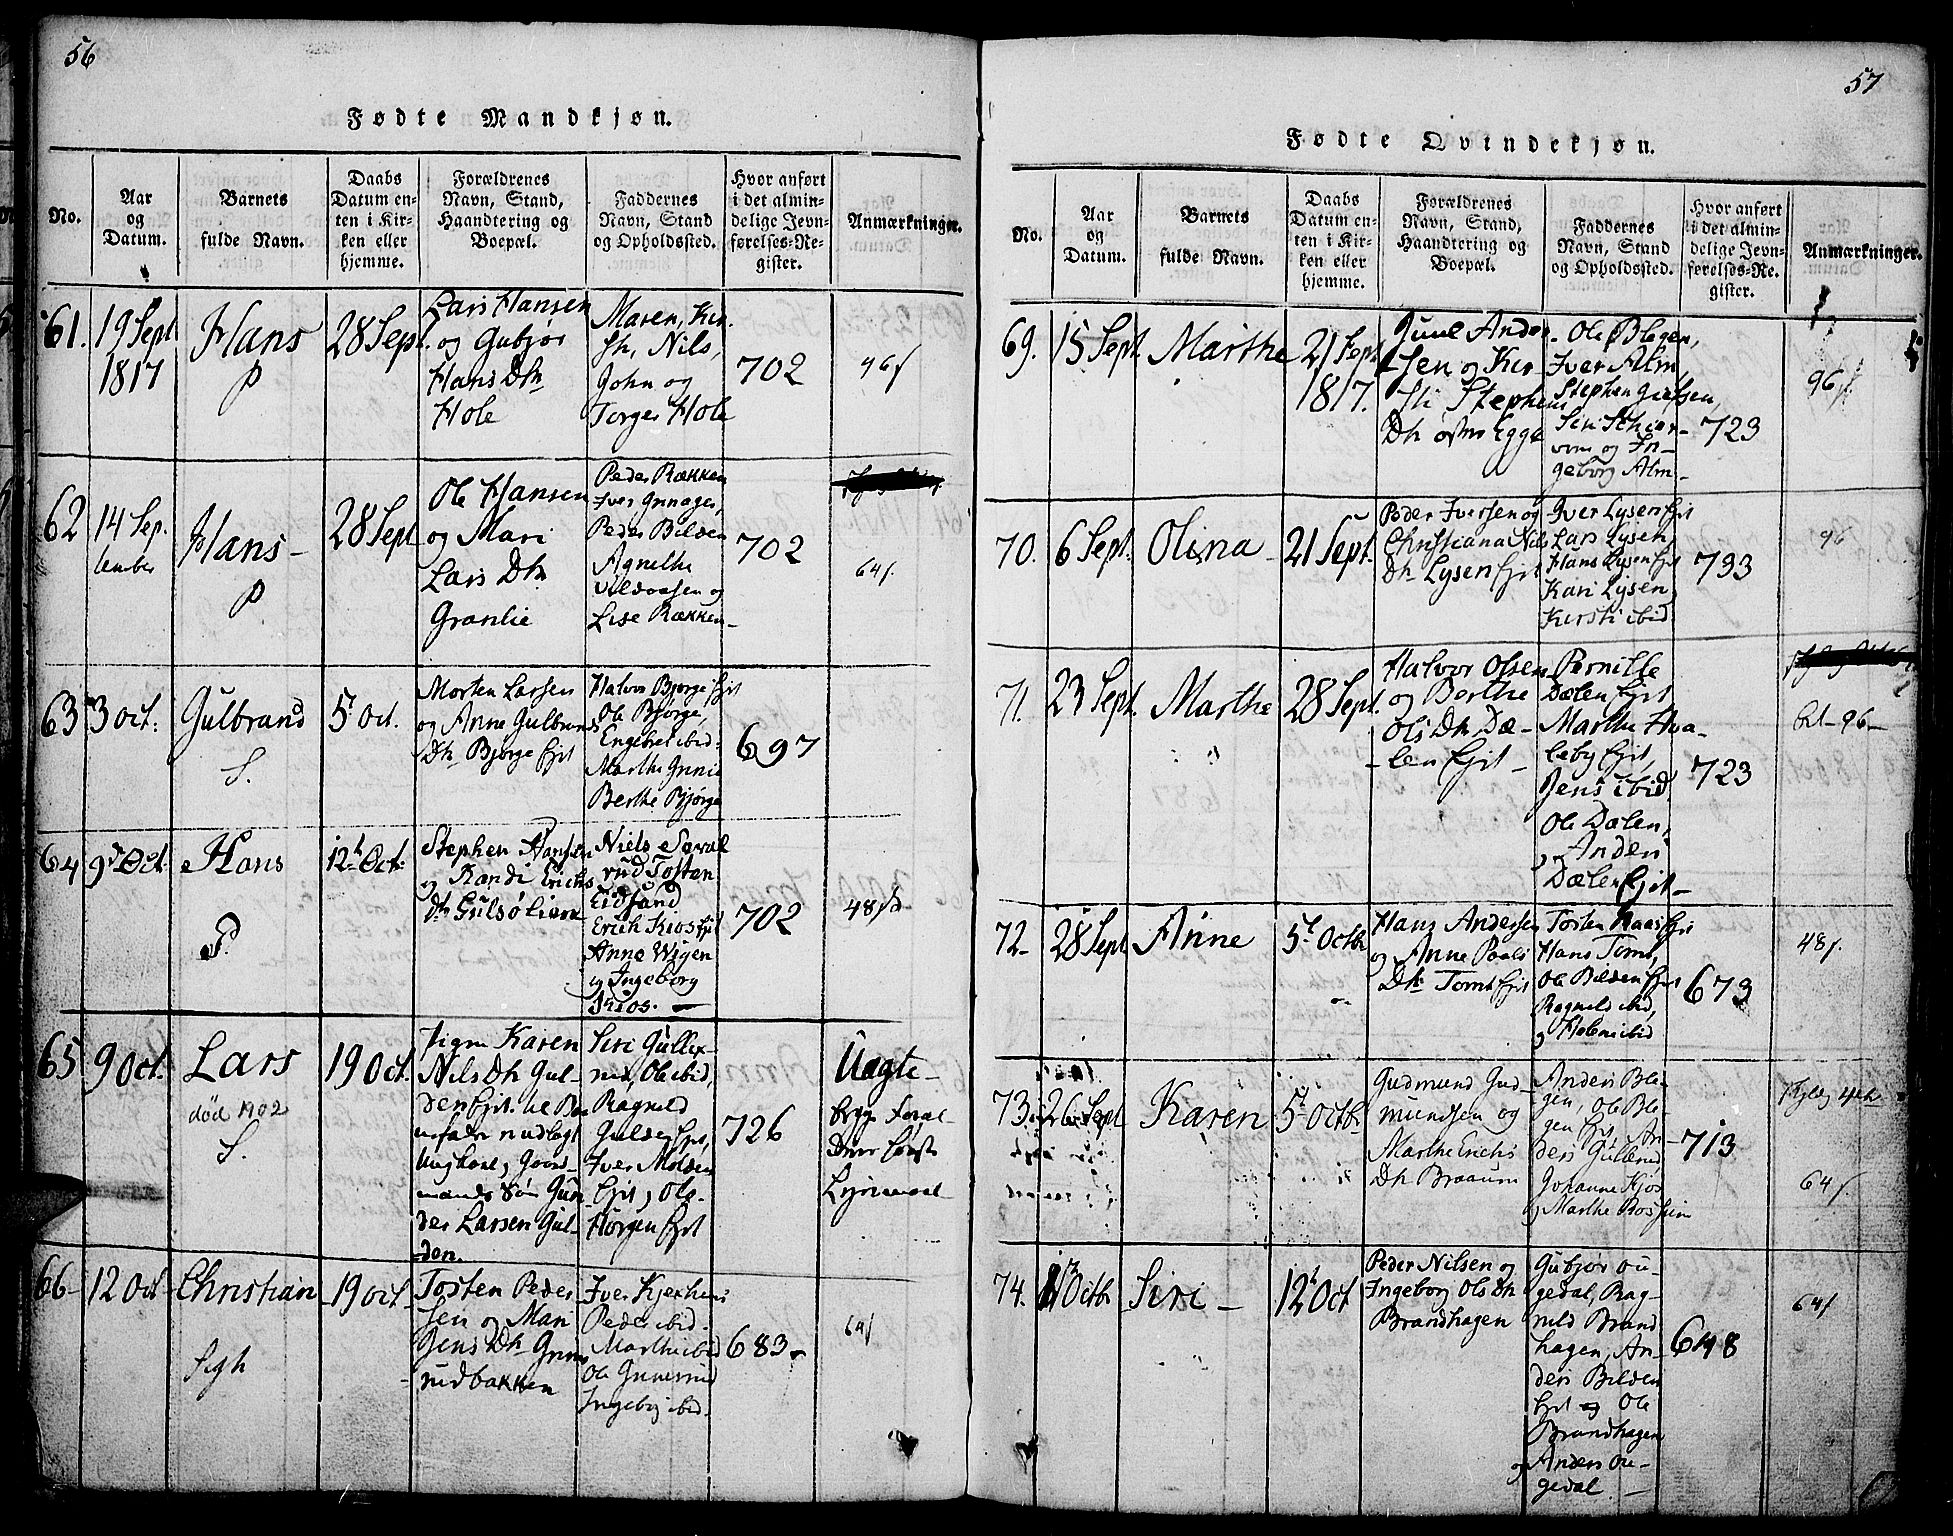 56
Fødte Mandkjøn.
No.
Aar
og
Datum.
Barnets
fulde Navn.
Daabs
Datum en-
ten i Kir-
ken eller
hjemme.
Forældrenes
Navn, Stand,
Haandtering og
Boepæl.
Faddernes
Navn, Stand
og Opholdssted.
Hvor anført
i det almin-
delige Jevn-
førelses-Re-
gister.
Anmærkninger.
61.
19 Sept
1817
Hans
P
28 Sept.
Lars Hansen
og Gubjør
Hans Dh
Hole
Maren, Kir-
sti, Nils,
John og
Torger Hole
702
96
62
14 Sep.
tember
Hans-
P
28 Sept
Ole Hansen
og Mari
Lars Dh
Granlie
Peder Rækken
Iver
Peder Bilden
Agnethe
og
Lise Rækken-
702
64
63
3 oct:
Gulbrand
S.
5 Oct.
Morten Larsen
og Anne Gulbrands
Dh Bjørge Ejet
Halvor Bjørge Ejet
Ole Bjørge,
Engebret ibid-
Marthe
Berthe Bjørge
697
64
9 Oct:
Hans
P.
12 Oct:
Stephen Hansen
og Randi Erichs
Dh
Niels
Tosten
Erich Kios Ejet
Anne Wigen
og Ingeborg
Kios.-
702
48
65
9 Oct.
Lars
død 1902
S.
19 Oct.
Pigen Karen
Nils Dh Gul-
den Ejet.
den Larsen Gul-
den.
Siri
Ole ibid,
Ragnild
Gulden Ejet,
Iver Molden
Ejet, Ole
Horgen Ejet
726
Uægte-
66-
12 Oct
Christian
19 Oct-
Tosten Peder
Sen og Mari
Jens Dh
rudbakken
Iver
Peder ibid-
Marthe ibid
Ole
Ingeborg ibid.
683-
64
57
Fødte Qvindekjøn.
No.
Aar
og
Datum.
Barnets
fulde Navn.
Daabs
Datum en-
ten i Kir-
ken eller
hjemme.
Forældrenes
Navn, Stand,
Haandtering og
Boepæl.
Faddernes
Navn, Stand
og Opholdssted.
Hvor anført
i det almin-
delige Jevn-
førelses-Re-
gister.
Anmærkninger.
69.
15 Sept.
Marthe
21 Sept
1817.
Juul Ander-
sen og Kir-
sti Stephens
Dh østre Egge
Ole Blegen,
Iver Alm,
Stephen
Siri
og In-
geborg Alm-
723
96
70.
6 Sept.
Olina
21 Sept.
Peder Iversen og
Christiana Nils
Dh Lysen Ejet
Iver Lysen Ejet
Lars Lysen,
Hans Lysen Ejet
Kari Lysen,
Kirsti ibid
733
96
71.
23 Sept.
Marthe
28 Sept.
Halvor Olsen
og Berthe
Ols Dh Dæ-
len Ejet-
Pernille
Dælen Ejet
Marthe Hva-
leby Ejet,
Jens ibid
Ole Dælen,
og Anders
Dælen Ejet-
723
96-
72-
28 Sept
Anne
5 Octbr
Hans Andersen
og Anne Pouls
Dh Tomt Ejet
Tosten Haas Ejet
Hans Tomt,
Ole Bilden Ejet
Ragnild ibid,
og Helene ibid
673
48
73.
26 Sept
Karen
5 Octbr
Gudmund Gud
mundsen og
Marthe Erichs
Dh Braaum
Anders Ble-
gen, Ole Ble-
gen Ejet, An-
ders Gullerud
Johanne Kjos
og Marthe
713
64
74.
Octbr
Siri-
12 Oct
Peder Nilsen og
Ingeborg Ols Dh
Brandhagen
Gubjør ou-
gedal, Rag-
nild Brand
hagen, An-
ders Bilden
Ejet og Ole
Brandhagen
og Anders ou-
gedal.-
648
64